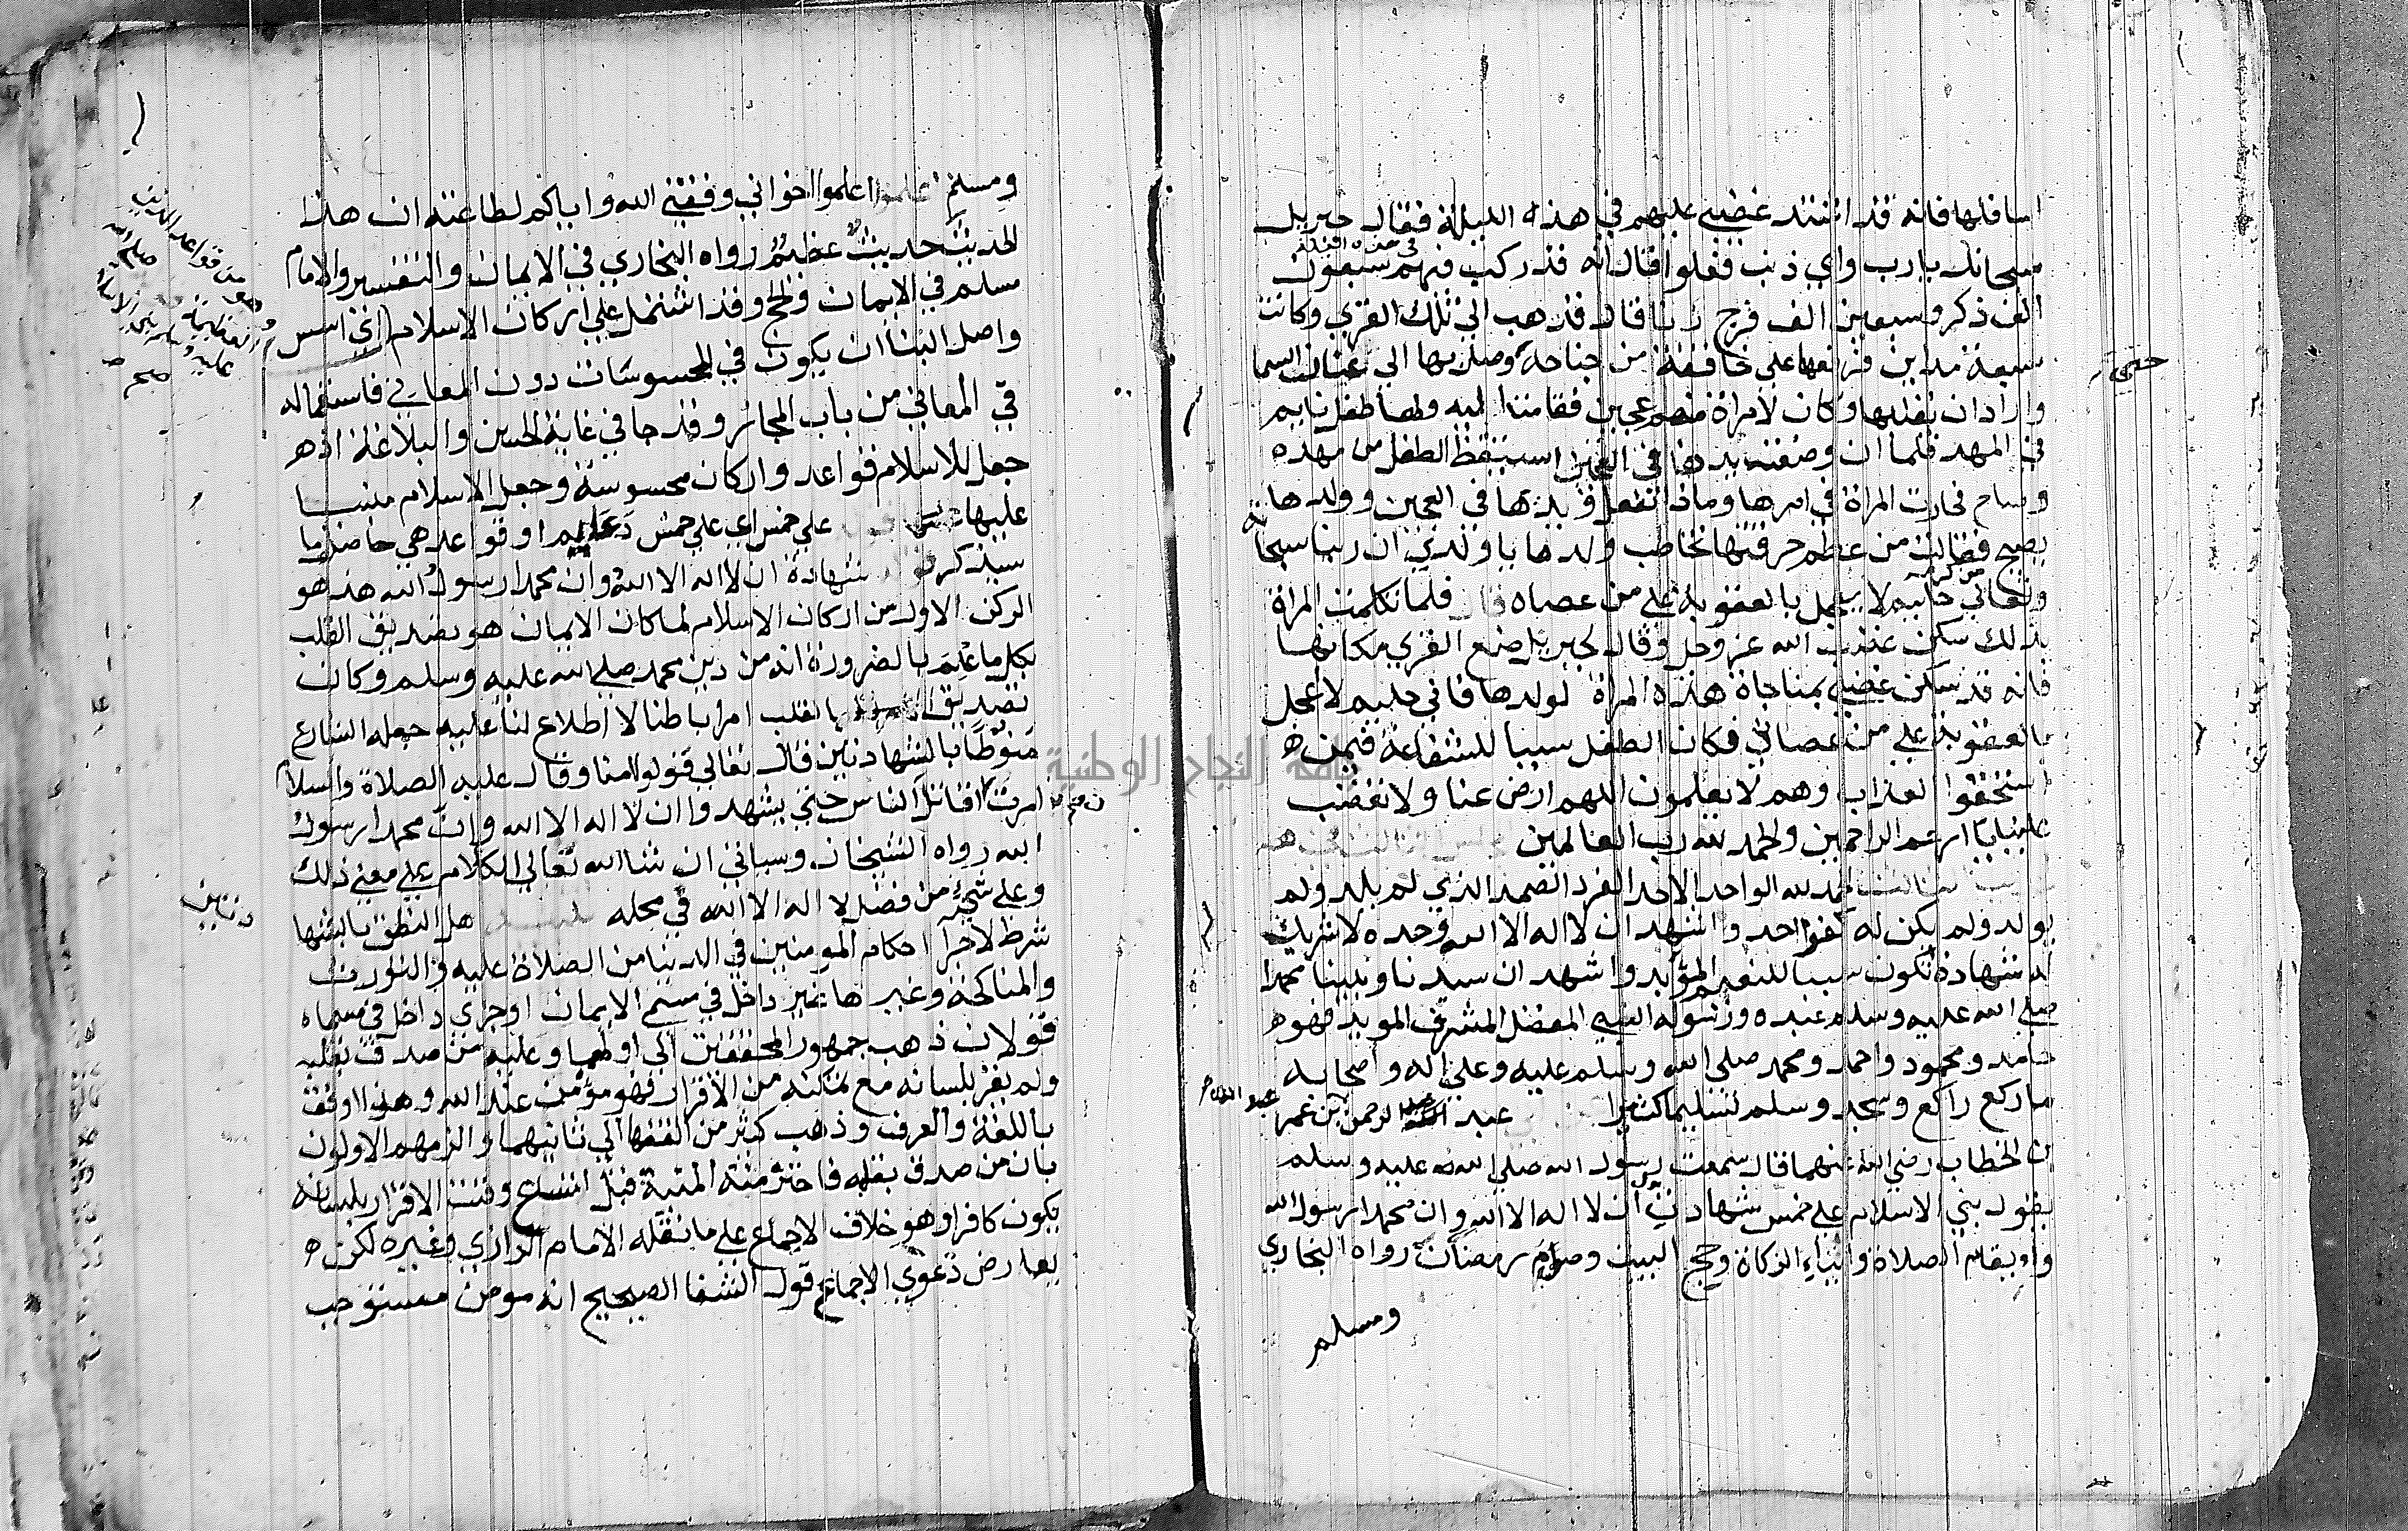 اسافلها فانه قد اشتد غضبي عليهم في هذه الليلة فقال جبريل
سبحانك يارب واي ذنب فعلوا قال انه قد ركب فيهم سبعون
في هذه الليلة
الف ذكر وسبعين الف فرج زنا قال فذهب الي تلك القري وكانت
سبعة مداين فرفعها على خافقة من جناحه وصل بها الي عنان السما
حتى
واراد ان يقلبها وكان لامراة منهم عجين فقامت اليه ولها طفل نايم
في المهد فلما ان وضعت يدها في العجين استيقظ الطفل من مهده
وصاح فحارت المراة في امرها وماذا تفعل ويدها في العجين وولدها
يصيح فقالت من عظم حرقتها تخاطب ولدها يا ولدي ان ربنا سبحانه
وتعالي حليم لا يعجل بالعقوبة على من عصاه قال فلما تكلمت المراة
بذلك سكن غضب الله عز وجل وقال لجبريل ضع القري مكانها
فانه قد سكن غضبي بمناجاة هذه المراة لولدها فاني حليم لا اعجل
بالعقوبة على من عصاني فكان الطفل سببا للشفاعة فيمن
استحقوا العذاب وهم لا يعلمون اللهم ارض عنا ولا تغضب
علينا يا ارحم الراحمين والحمد لله رب العالمين
الحمد لله الواحد الاحد الفرد الصمد الذي لم يلد ولم
يولد ولم يكن له كفوا احد واشهد ان لا اله الا الله وحده لا شريك
له شهادة تكون سببا للنعيم المؤبد واشهد ان سيدنا ونبينا محمدا
صلى الله عليه وسلم عبده ورسوله النبي المفضل المشرف المويد فهو
حامد ومحمود واحمد ومحمد صلى الله وسلم عليه وعلى اله واصحابه
ما ركع راكع وسجد وسلم تسليما كثيرا عن ابي عبد الرحمن بن عمر
عبد الله
بن الخطاب رضي الله عنهما قال سمعت رسول الله صلى الله عليه وسلم
يقول بني الاسلام على خمس شهادة ان لا اله الا الله وان محمدا رسول الله
واقام الصلاة وايتاء الزكاة وحج البيت وصوم رمضان رواه البخاري
ومسلم
ومسلم اعلموا اخواني وفقني الله واياكم لطاعته ان هذا
الحديث حديث عظيم رواه البخاري في الايمان والتفسير والامام
مسلم في الايمان والحج وقد اشتمل على اركان الاسلام اي اسس
وهو من قواعد الدين
العظيمة
واصل البنا ان يكون في المحسوسات دون المعاني فاستعماله
في المعاني من باب المجاز وقد جا في غاية الحسن والبلاغة اذ
جعل للاسلام قواعد واركان محسوسة وجعل الاسلام مبنيا
عليها على خمس اي على خمس دعايم او قواعد هي خاصة ما
سيذكر شهادة ان لا اله الا الله وان محمدا رسول الله هذا هو
الركن الاول من اركان الاسلام لما كان الايمان هو تصديق القلب
بكل ما علم بالضرورة انه من دين محمد صلى الله عليه وسلم وكان
تصديق بالقلب امرا باطنا لا اطلاع لنا عليه جعله الشارع
منوطا بالشهادتين قال تعالي قولوا امنا وقال عليه الصلاة والسلام
امرت ان اقاتل الناس حتى يشهدوا ان لا اله الا الله وان محمدا رسول
الله رواه الشيخان وسياتي ان شا الله تعالي الكلام على معني ذلك
وعلى شيء من فضل لا اله الا الله في محله هل النطق بالشها
دتين
شرط لاجرا احكام المومنين في الدنيا من الصلاة عليه والتوارث
والمناكحة وغيرها غير داخل في مسمى الايمان او جزء داخل في مسماه
قولان ذهب جمهور المحققين الي اولهما وعليه من صدق بقلبه
ولم يقر بلسانه مع تمكنه من الاقرار فهو مؤمن عند الله وهذا اوفق
باللغة والعرف وذهب كثير من الفقها الي ثانيهما والزمهم الاولون
بان من صدق بقلبه فاخترمته المنية قبل اتساع وقت الاقرار بلسانه
يكون كافرا وهو خلاف الاجماع على ما نقله الامام الرازي وغيره لكن
يعارض دعوي الاجماع قول الشفا الصحيح انه مومن مستوجب
جامعة النجاح الوطنية